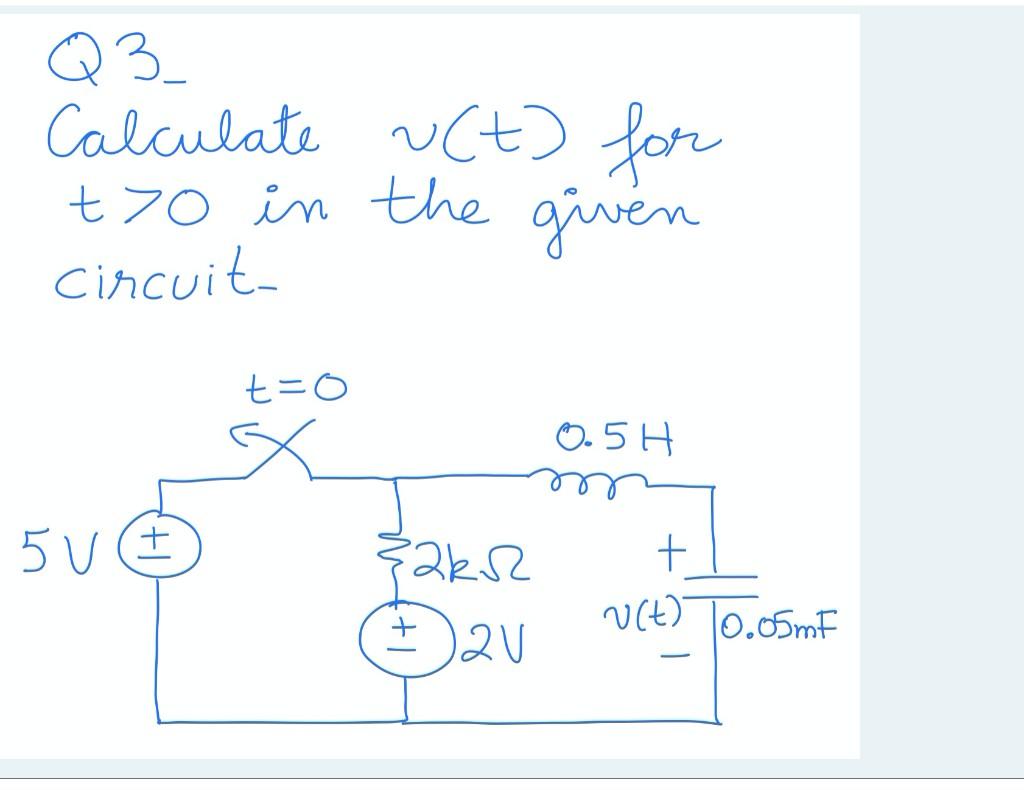 Q3_
Calculate v(t) for
t>0 in the given
circuit-
t=0
0.5H
5V
±
2kΩ
+
v(t)
-
0.05mF
±
2V